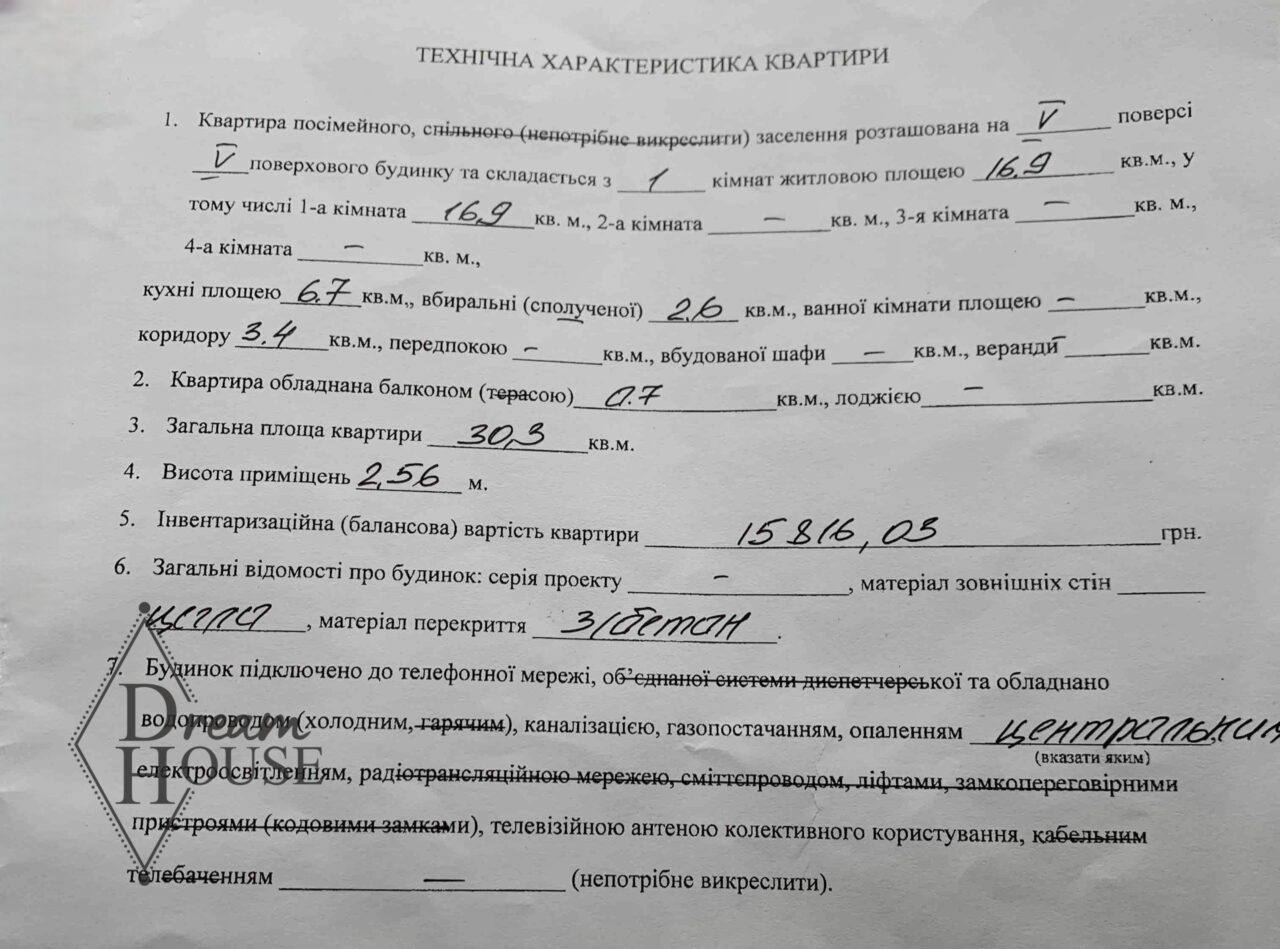 ТЕХНІЧНА ХАРАКТЕРИСТИКА КВАРТИРИ
1. Квартира посімейного, спільного (непотрібне викреслити) заселення розташована на V поверсі
V поверхового будинку та складається з 1 кімнат житловою площею 16,9 кв.м., у
тому числі 1-а кімната 16,9 кв. м., 2-а кімната – кв. м., 3-я кімната – кв. м.,
4-а кімната – кв. м.,
кухні площею 6.7 кв.м,, вбиральні (сполученої) 2,6 кв.м., ванної кімнати площею – кв.м.,
коридору 3.4 кв.м., передпокою – кв.м., вбудованої шафи – кв.м., веранди – кв.м.
2. Квартира обладнана балконом (терасою) 0.7 кв.м., лоджією – кв.м.
3. Загальна площа квартири 30,3 кв.м.
4. Висота приміщень 2,56 м.
5. Інвентаризаційна (балансова) вартість квартири 15816,03 грн.
6. Загальні відомості про будинок: серія проекту –, матеріал зовнішніх стін
цегла, матеріал перекриття з/бетон.
7. Будинок підключено до телефонної мережі, об’єднаної системи диспетчерської та обладнано
водопроводом (холодним, гарячим), каналізацією, газопостачанням, опаленням центральним,
(вказати яким)
електроосвітленням, радіотрансляційною мережею, сміттєпроводом, ліфтами, замкопереговірними
пристроями (кодовими замками), телевізійною антеною колективного користування, кабельним
телебаченням – (непотрібне викреслити).
Dream
HOUSE